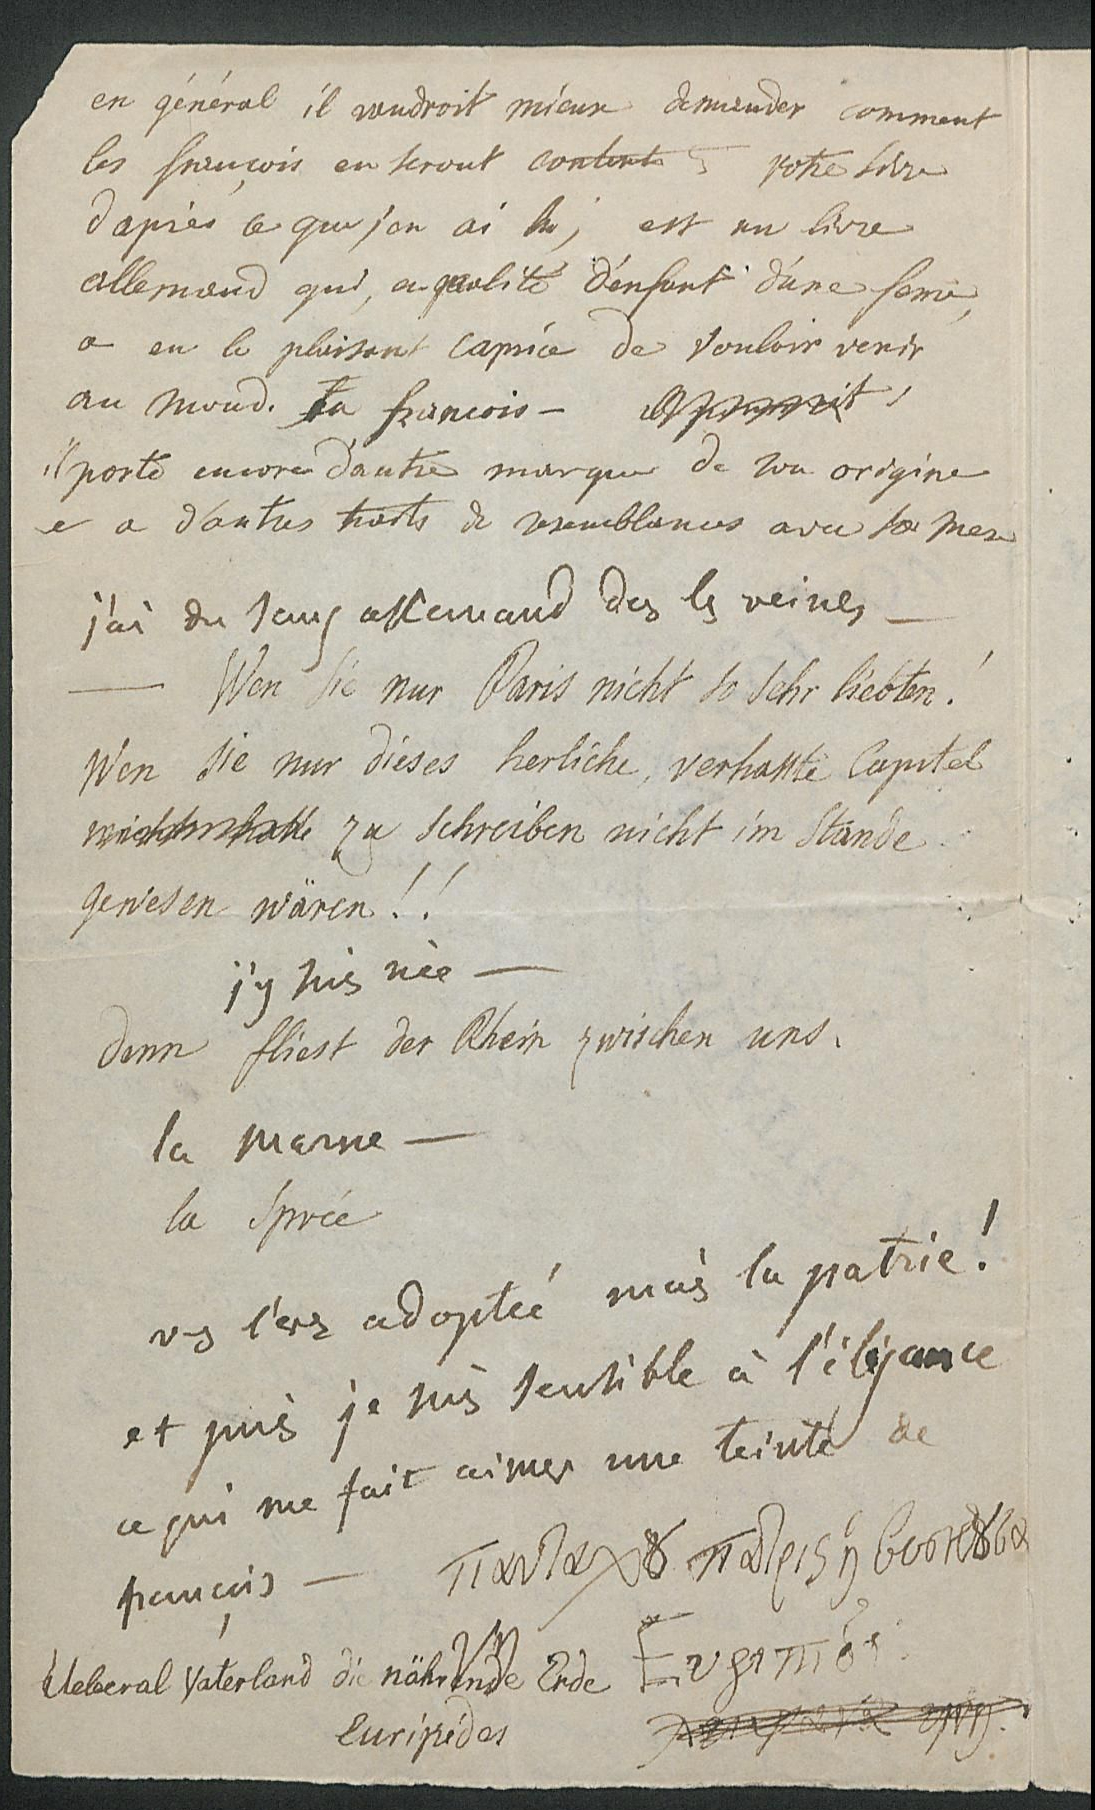 en général il vaudroit mieux demander comment
les françois en seront contents votre livre
d'après ce que j'en ai lu, est un livre
allemand qui, en qualité d'enfant d'une feme,
a eu le plaisant caprice de vouloir venir
au mond. En francois –
il porte encore d'autre marque de son origine
e a d'autres traits de resemblances avec sa mere
j'ai du sang allemand des les veines —
— Wen Sie nur Paris nicht so sehr liebten!
Wen Sie nur dieses herliche, verhasste Capitel
zu schreiben nicht im Stande
gewesen wären!!
j'y suis née —
denn fliest der Rhein zwischen uns.
la Marne —
la Sprée
vs l'ez adoptée mais la patrie!
et puis je suis sensible à l'élégance
ce qui me fait aimer une teinte de
françois — πανταχȣ πατρις ἡ βοσκȣσα
Ueberal Vaterland die nährende Erde Ευριπιδ
Euripides